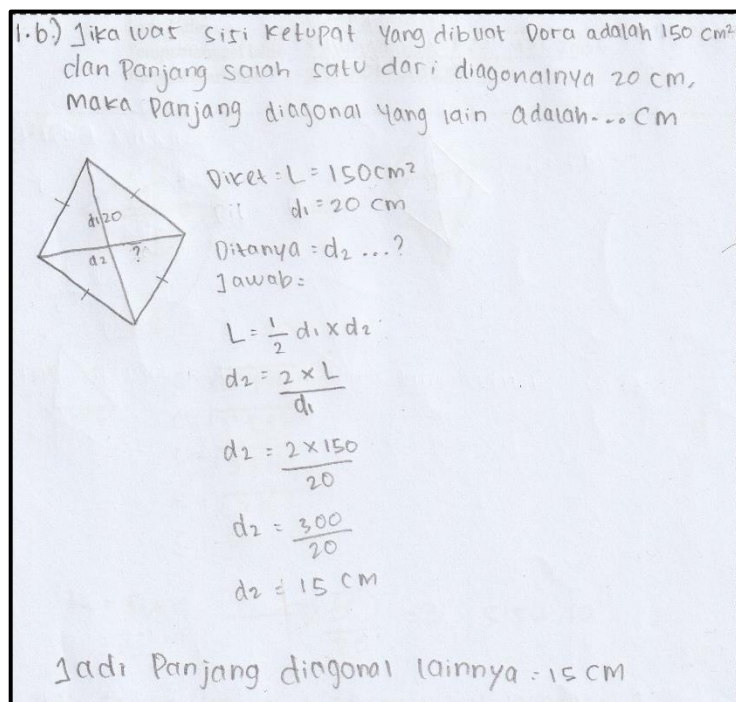 1.b.) Jika luas sisi ketupat yang dibuat Dora adalah 150 cm²
dan Panjang salah satu dari diagonalnya 20 cm,
maka Panjang diagonal yang lain adalah... cm
Diket = L = 150 cm²
d₁ = 20 cm
d₁ 20
d₂ ?
Ditanya = d₂ ...?
Jawab =
L = 1/2 d₁ x d₂
d₂ = 2 x L / d₁
d₂ = 2 x 150 / 20
d₂ = 300 / 20
d₂ = 15 cm
Jadi Panjang diagonal lainnya = 15 cm